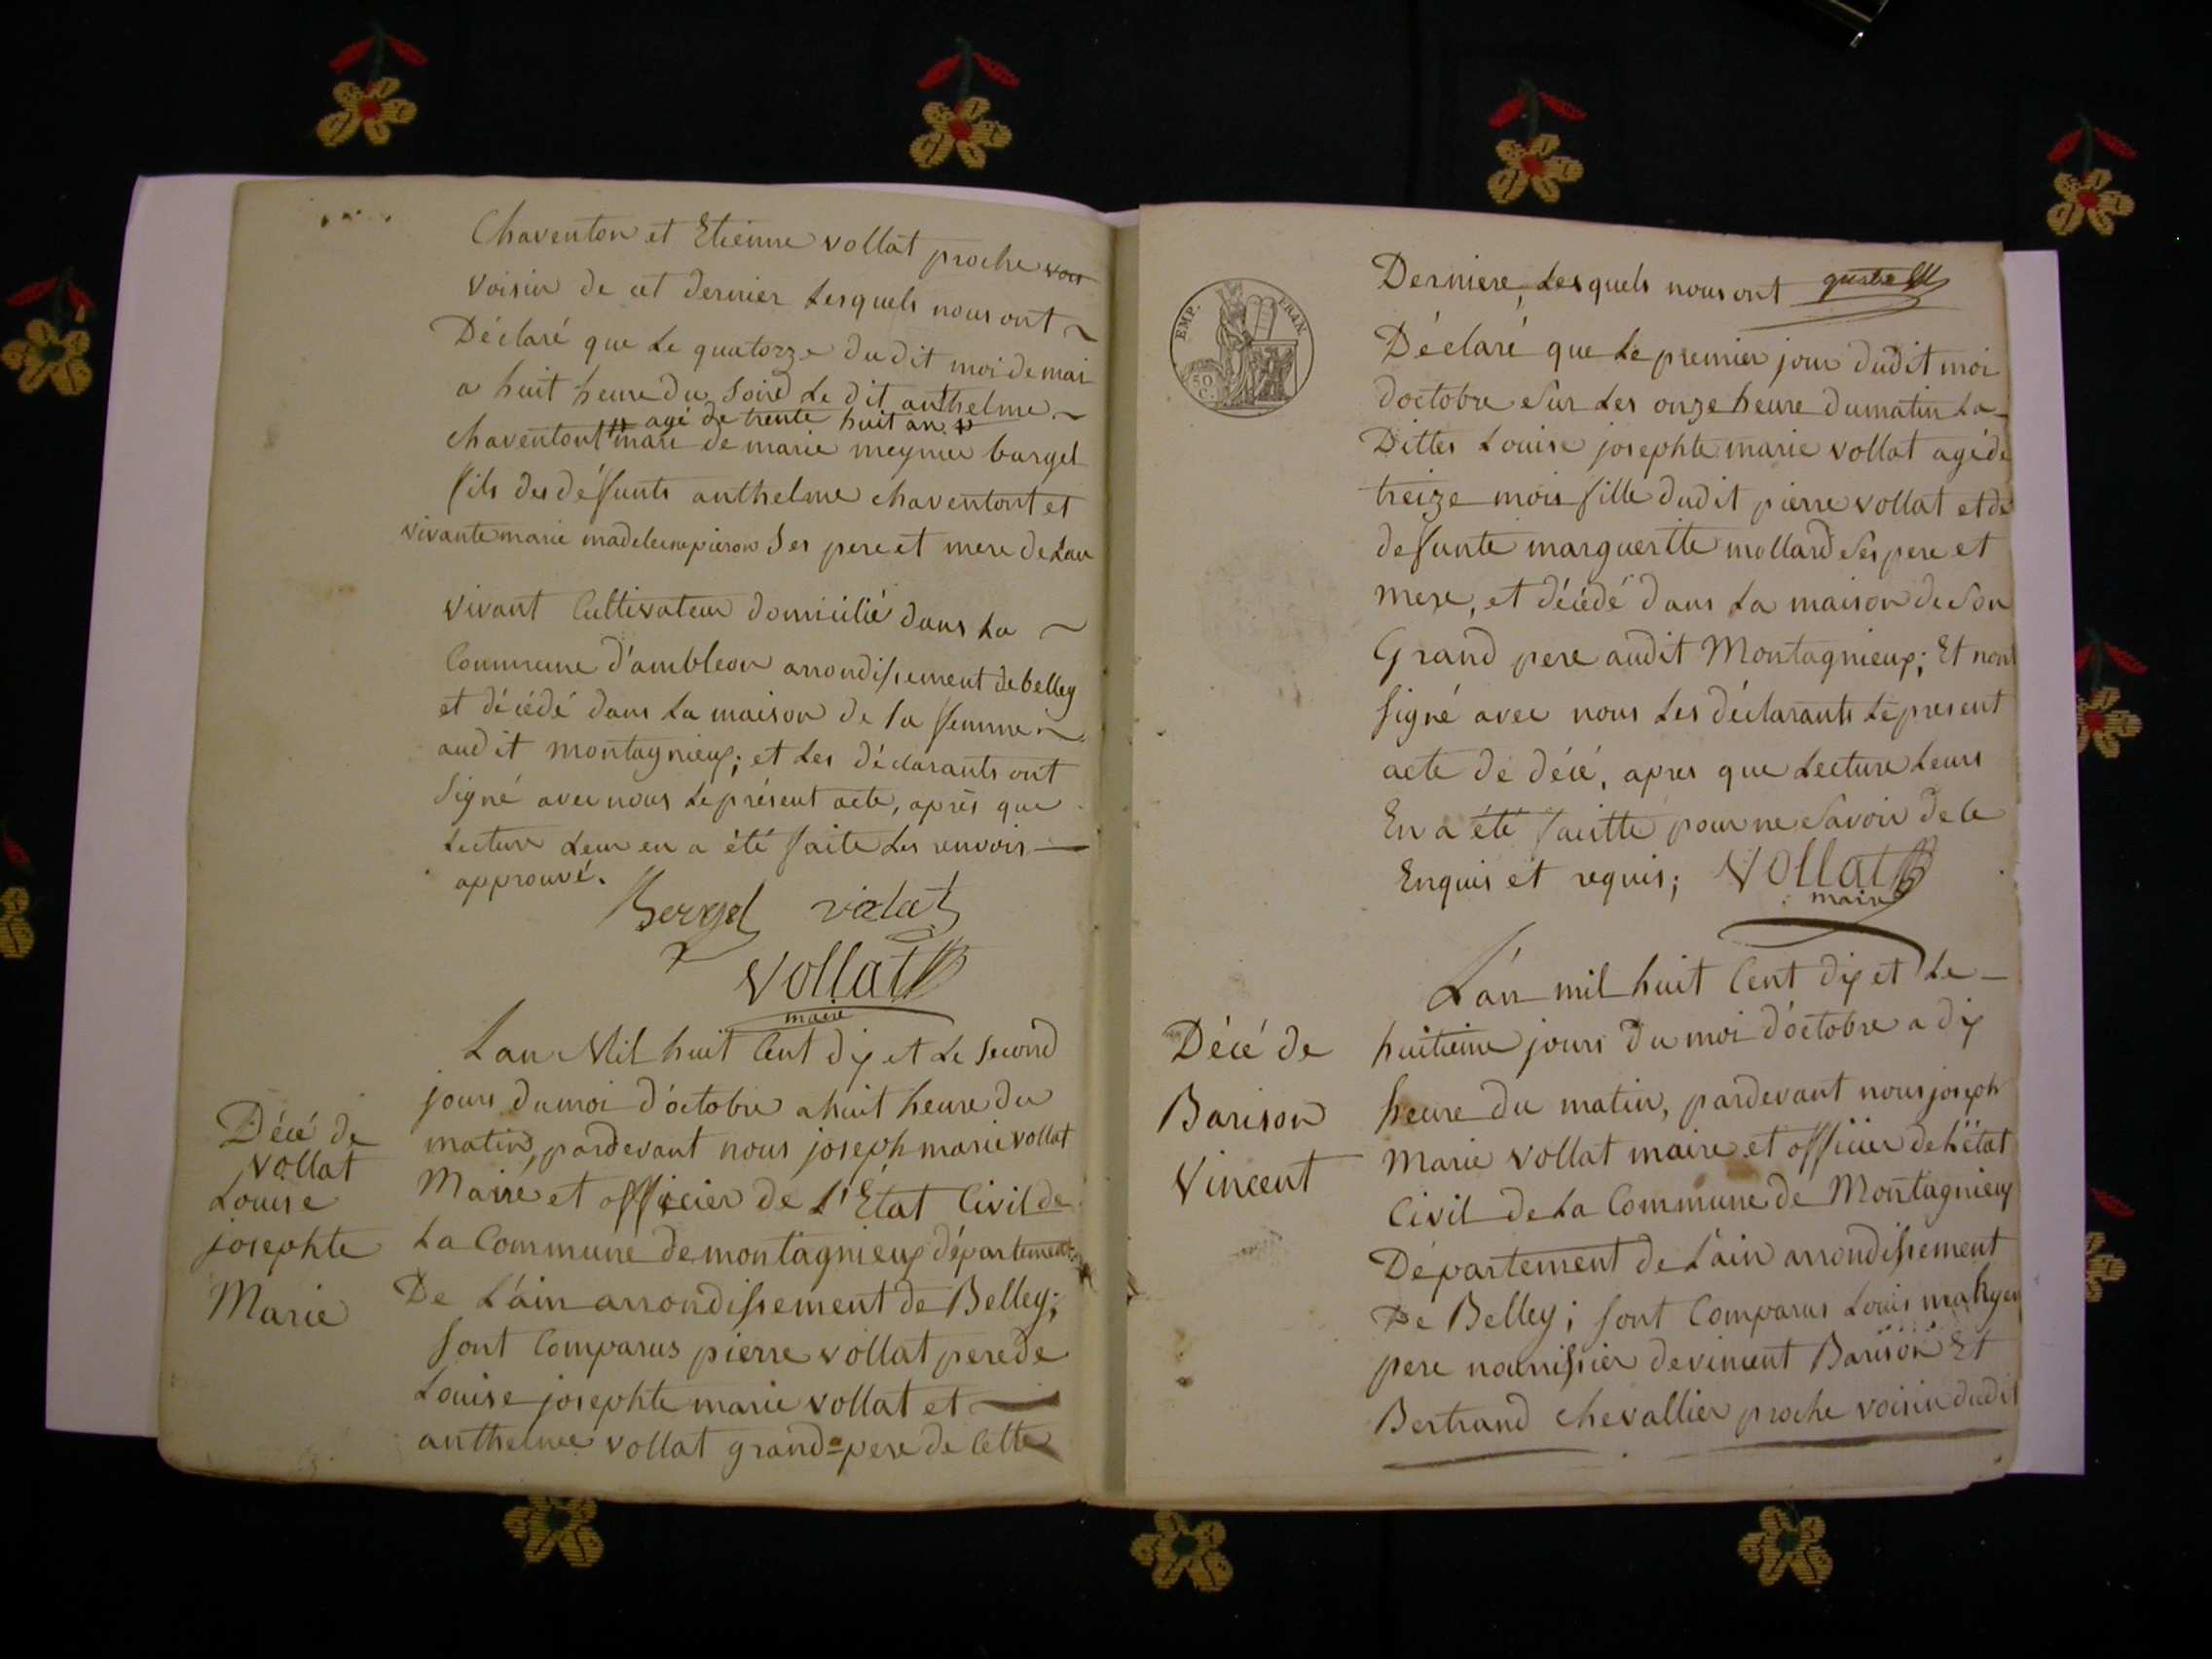 Chaventon et Etienne vollat proche vois
voisin de cet dernier Lesquels nous ont
Déclaré que Le quatorze du dit moi de mai
a huit heure du Soird Le dit anthelme
agé de trente huit an
chaventont mari de marie meynier bargel
fils des défunts anthelme chaventont et
vivante marie madeleine Ses pere et mere de Leur
vivant Cultivateur domicilié dans La
Commune d'ambleon arrondissement de belley
et décédé dans La maison de Sa femme
audit montagnieux; et Les déclarants ont
Signé avec nous Le présent acte, après que
Lecture Leur en a été faite Les renvois
approuvé.
Bergel violat
Vollat
maire
Lan Mil huit Cent dix et Le Second
Décé de
Vollat
Louise
josephte
Marie
jours du moi d'octobre a huit heure du
matin, pardevant nous joseph marie vollat
Maire et officier de L'État Civil de
La Commune de montagnieux département
De L'ain arrondissement de Belley;
Sont Comparus pierre vollat pere de
Louise josephte marie vollat et
anthelme vollat grand-pere de Cette
EMP. FRAN.
50 C.
Derniere, Lesquels nous ont
Déclaré que Le premier jour dudit moi
doctobre Sur Les onze heure dumatin La
Dittes Louise josephte marie vollat agé de
treize mois fille dudit pierre vollat et de
defunte marguerite mollard Ses pere et
mere, et décédé dans La maison de Son
Grand pere audit Montagnieux; Et nont
Signé avec nous Les déclarants Le present
acte de décé, apres que Lecture Leurs
En a été faitte pour ne Savoir de Ce
Enquis et requis; Vollat
maire
L'an mil huit Cent dix et Le
Décé de
Barison
Vincent
huitieme jours du moi d'octobre a dix
heure du matin, pardevant nous joseph
Marie vollat maire et officier de L'état
Civil de La Commune de Montagnieux
Département de L'ain arrondissement
De Belley; Sont Comparus Louis
pere nourrissier de vincent Barison Et
Bertrand chevallier proche voisin dudit